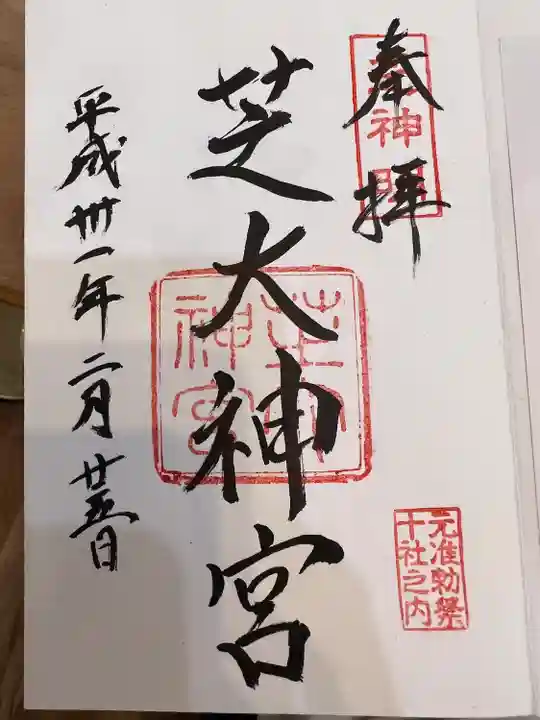 奉拝
芝大神宮
平成卅一年二月廿五日
芝大
神宮
元准勅祭
十社之内